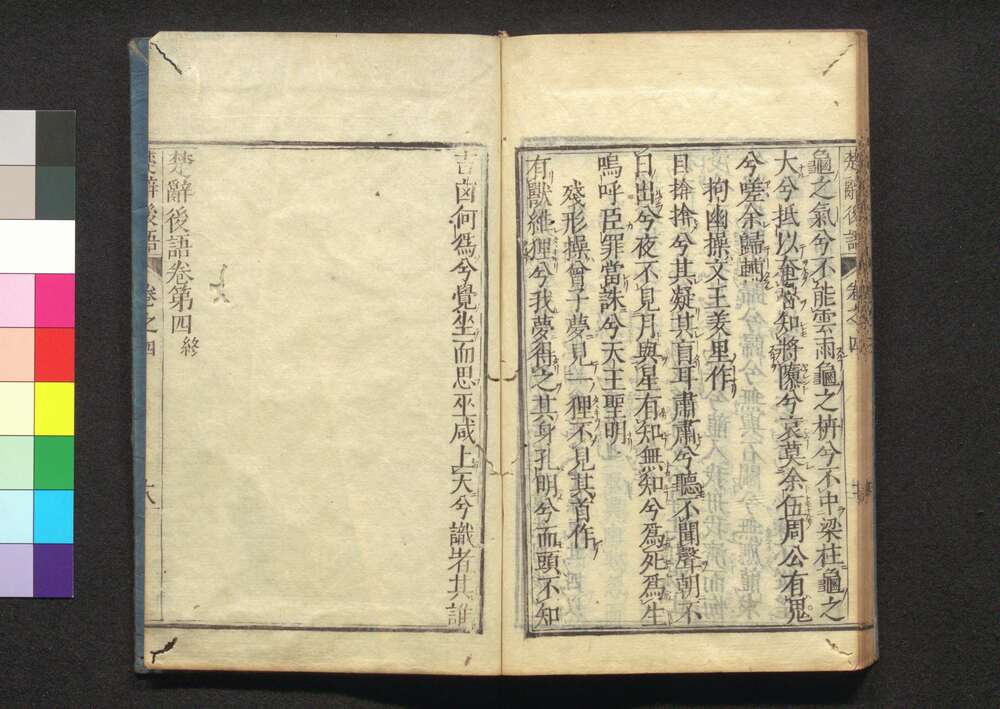 楚辭後語 卷之四
龜之氣兮不能雲雨龜之枿兮不中梁柱龜之
大兮抵以奄魯知將隳兮哀莫余伍周公有鬼
兮嗟余歸輔
拘幽操文王羑里作
目揜揜兮其凝其盲耳肅肅兮聽不聞聲朝不
日出兮夜不見月與星有知無知兮爲死爲生
嗚呼臣罪當誅兮天王聖明
殘形操曾子夢見一狸不見其首作
有獸維狸兮我夢得之其身孔明兮而頭不知
吉凶何爲兮覺坐而思巫咸上天兮識者其誰
楚辭後語卷第四終
楚辭後語 卷之四